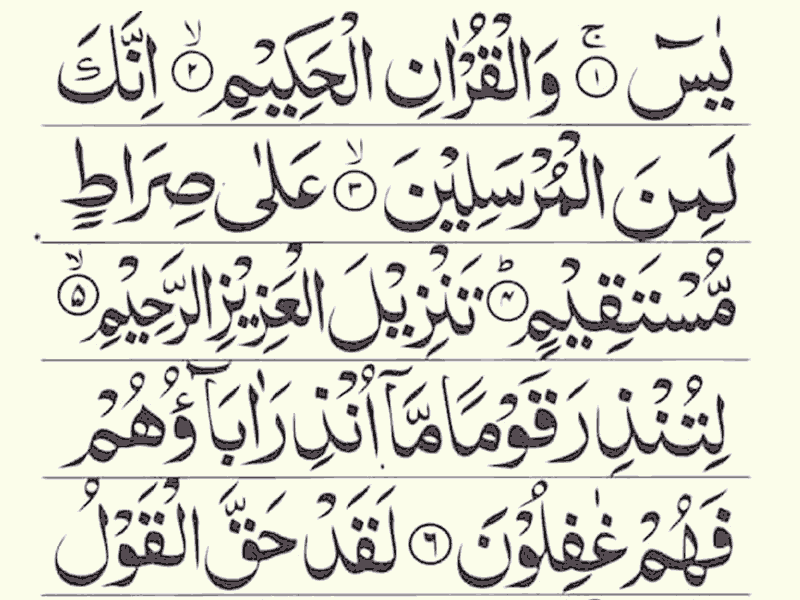 يٰسٓ ۚ ﴿۱﴾ وَالْقُرْاٰنِ الْحَكِيْمِ ۙ ﴿۲﴾ اِنَّكَ
لَمِنَ الْمُرْسَلِيْنَ ۙ ﴿۳﴾ عَلٰى صِرَاطٍ
مُّسْتَقِيْمٍ ؕ ﴿۴﴾ تَنْزِيْلَ الْعَزِيْزِ الرَّحِيْمِ ۙ ﴿۵﴾
لِتُنْذِرَ قَوْمًا مَّاۤ اُنْذِرَ اٰبَآؤُهُمْ
فَهُمْ غٰفِلُوْنَ ﴿۶﴾ لَقَدْ حَقَّ الْقَوْلُ